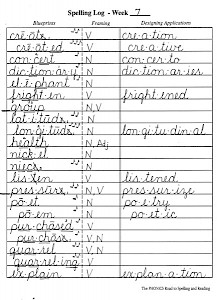 Spelling Log - Week 7
Blueprints Framing Designing Applications
crē āte V cre a tion
crē āt ed V cre a tive
con cert N con cer to
dic tion ar y N dic tion ar ies
el e phant N
fright en V fright ened
group N,V
lat i tude N
lon gi tude N lon gi tu di nal
health N, Adj
nick el N
niece N
lis ten V lis tened
pres sure N,V pres sur ize
pō et N po e try
pō em N po et ic
pur chased V
pur chase V, N
quar rel V, N
quar rel ing V
ex plain V ex plan a tion
The PHONICS Road to Spelling and Reading